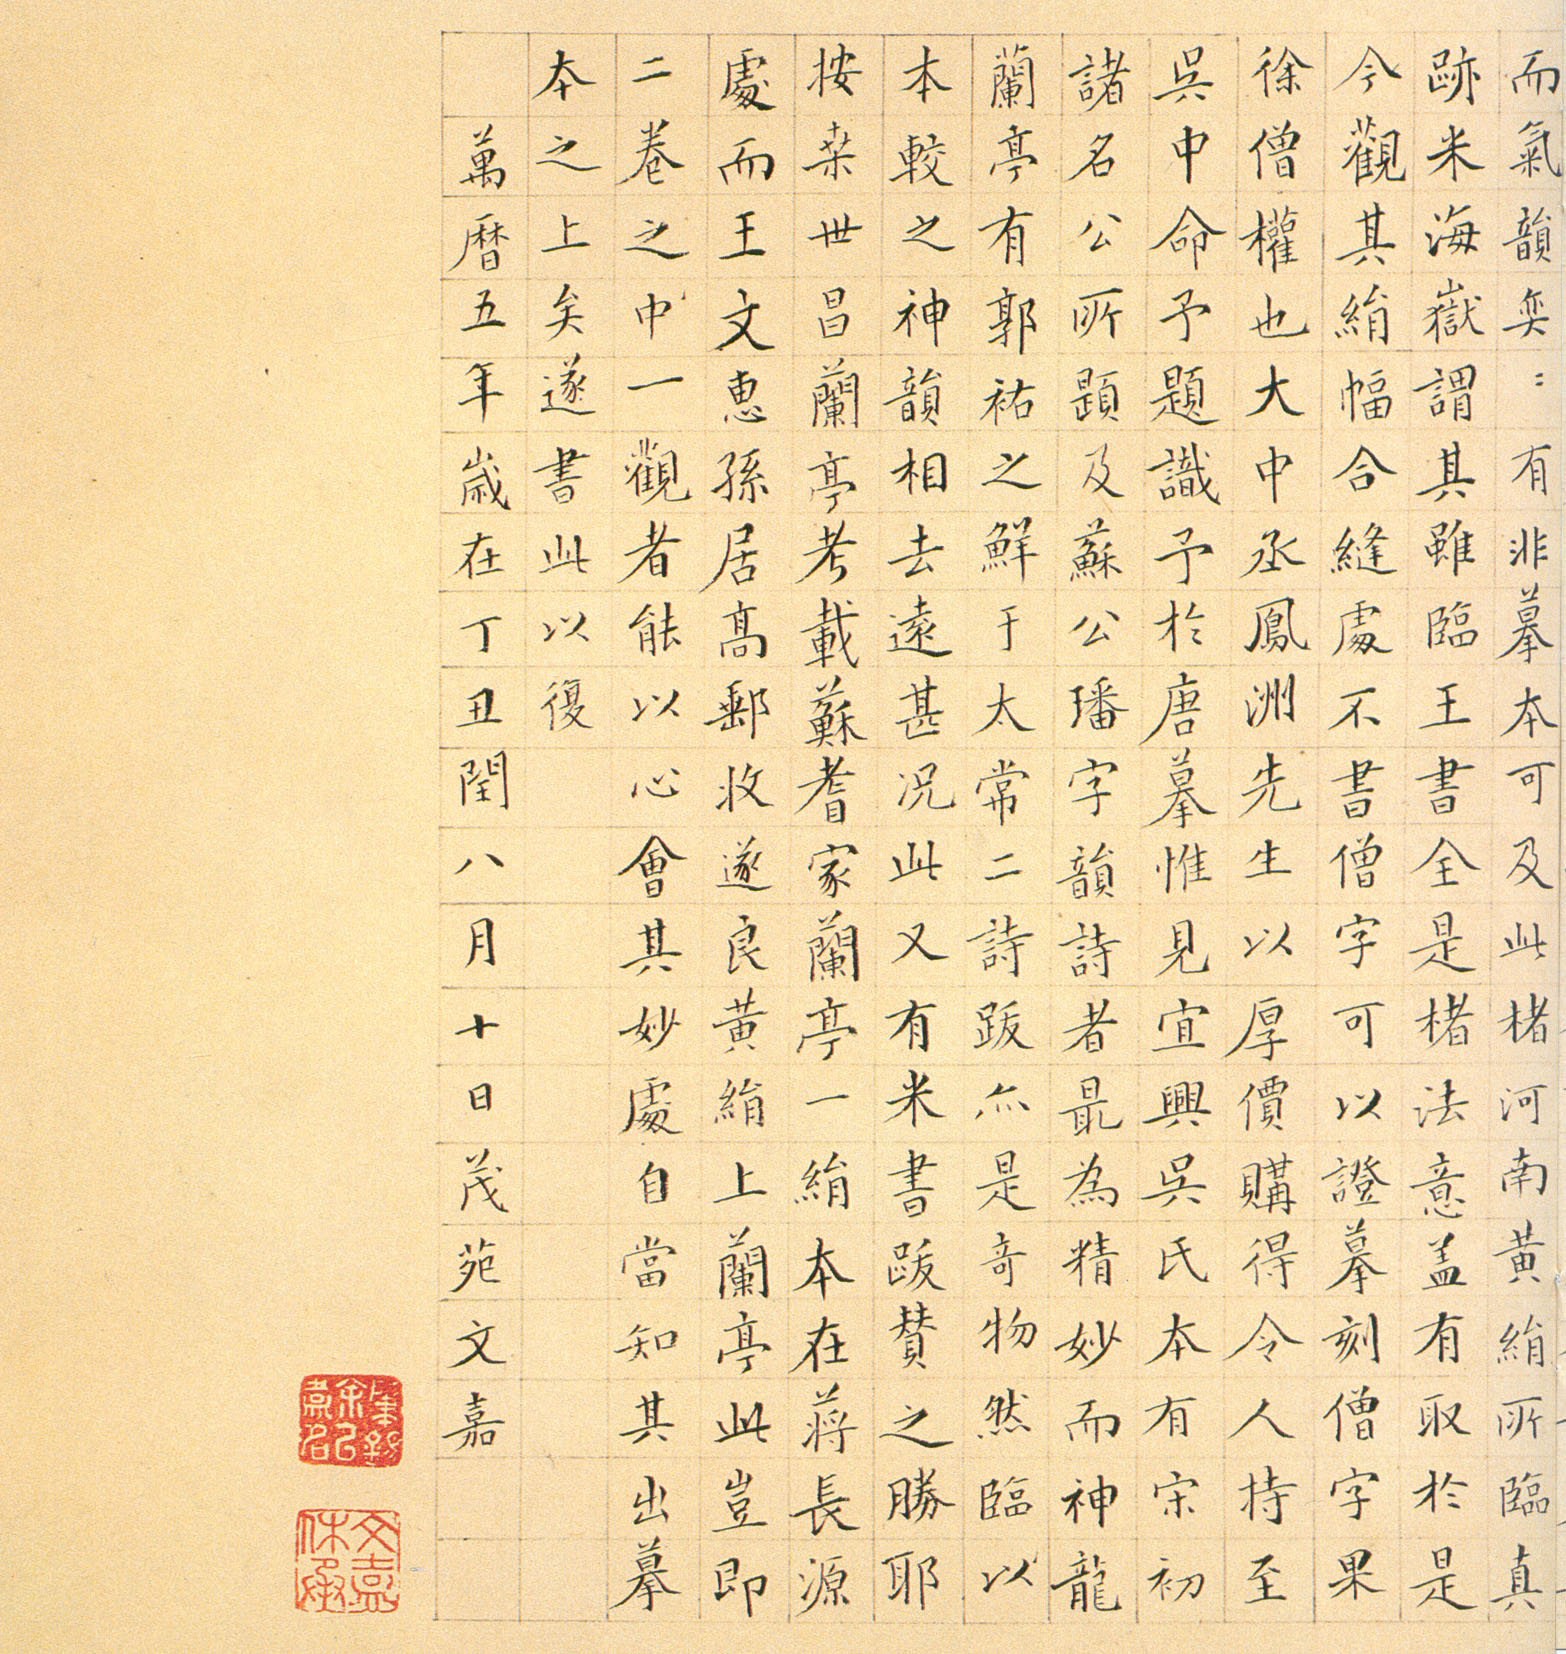 而氣韻奕〻有非摹本可及此楮河南黃絹所臨真
跡米海嶽謂其雖臨王書全是楮法意盖有取於是
今觀其絹幅合縫處不書僧字可以證摹刻僧字果
徐僧權也大中丞鳳洲先生以厚價購得令人持至
吳中命予題識予於唐摹惟見宜興吳氏本有宋初
諸名公所題及蘇公璠字韻詩者最為精妙而神龍
蘭亭有郭祐之鮮于太常二詩跋亦是奇物然臨以
本較之神韻相去遠甚況此又有米書跋賛之勝耶
按桒世昌蘭亭考載蘇耆家蘭亭一絹本在蔣長源
處而王文惠孫居高郵收遂良黃絹上蘭亭此豈即
二卷之中一觀者能以心會其妙處自當知其出摹
本之上矣遂書此以復
萬曆五年歲在丁丑閏八月十日茂苑文嘉
文嘉休承